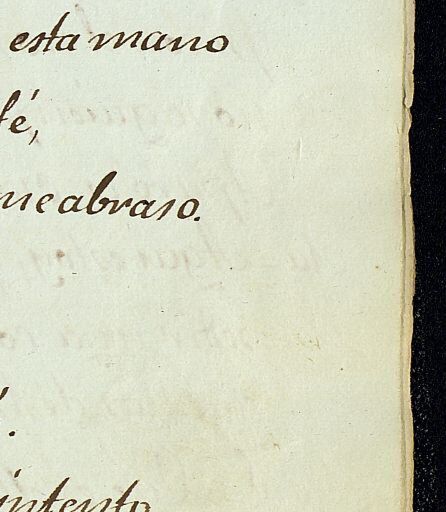 esta mano
fé,
me abraso.
intento